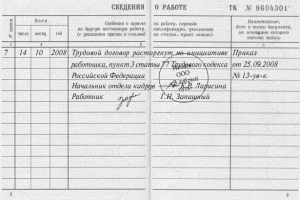 СВЕДЕНИЯ О РАБОТЕ ТК № 8604301
№ записи
Дата
число месяц год
Сведения о приеме на работу, переводе
на другую постоянную работу, квалификации, увольнении
(с указанием причин и ссылкой на статью, пункт закона)
Наименование,
дата и номер документа,
на основании которого
внесена запись
1 2 3 4
7 14 10 2008 Трудовой договор расторгнут по инициативе Приказ
работника, пункт 3 статьи 77 Трудового кодекса от 25.09.2008
Российской Федерации № 13-ув-к
Начальник отдела кадров К.В. Ларисина
Работник Г.Н. Запашный
ООО
2 3